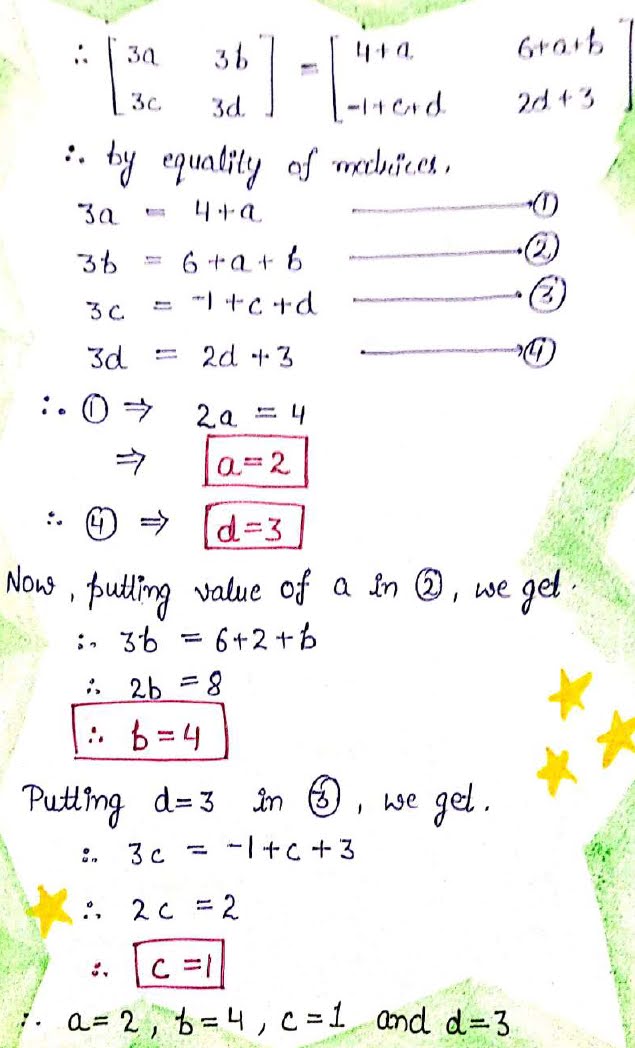 ∴ [ 3a 3b ] = [ 4+a 6+a+b ]
[ 3c 3d ] [ -1+c+d 2d+3 ]
∴ by equality of matrices,
3a = 4+a ①
3b = 6+a+b ②
3c = -1+c+d ③
3d = 2d+3 ④
∴ ① ⇒ 2a = 4
⇒ a=2
∴ ④ ⇒ d=3
Now, putting value of a in ②, we get.
∴ 3b = 6+2+b
∴ 2b = 8
∴ b=4
Putting d=3 in ③, we get.
∴ 3c = -1+c+3
∴ 2c = 2
∴ c=1
∴ a=2, b=4, c=1 and d=3